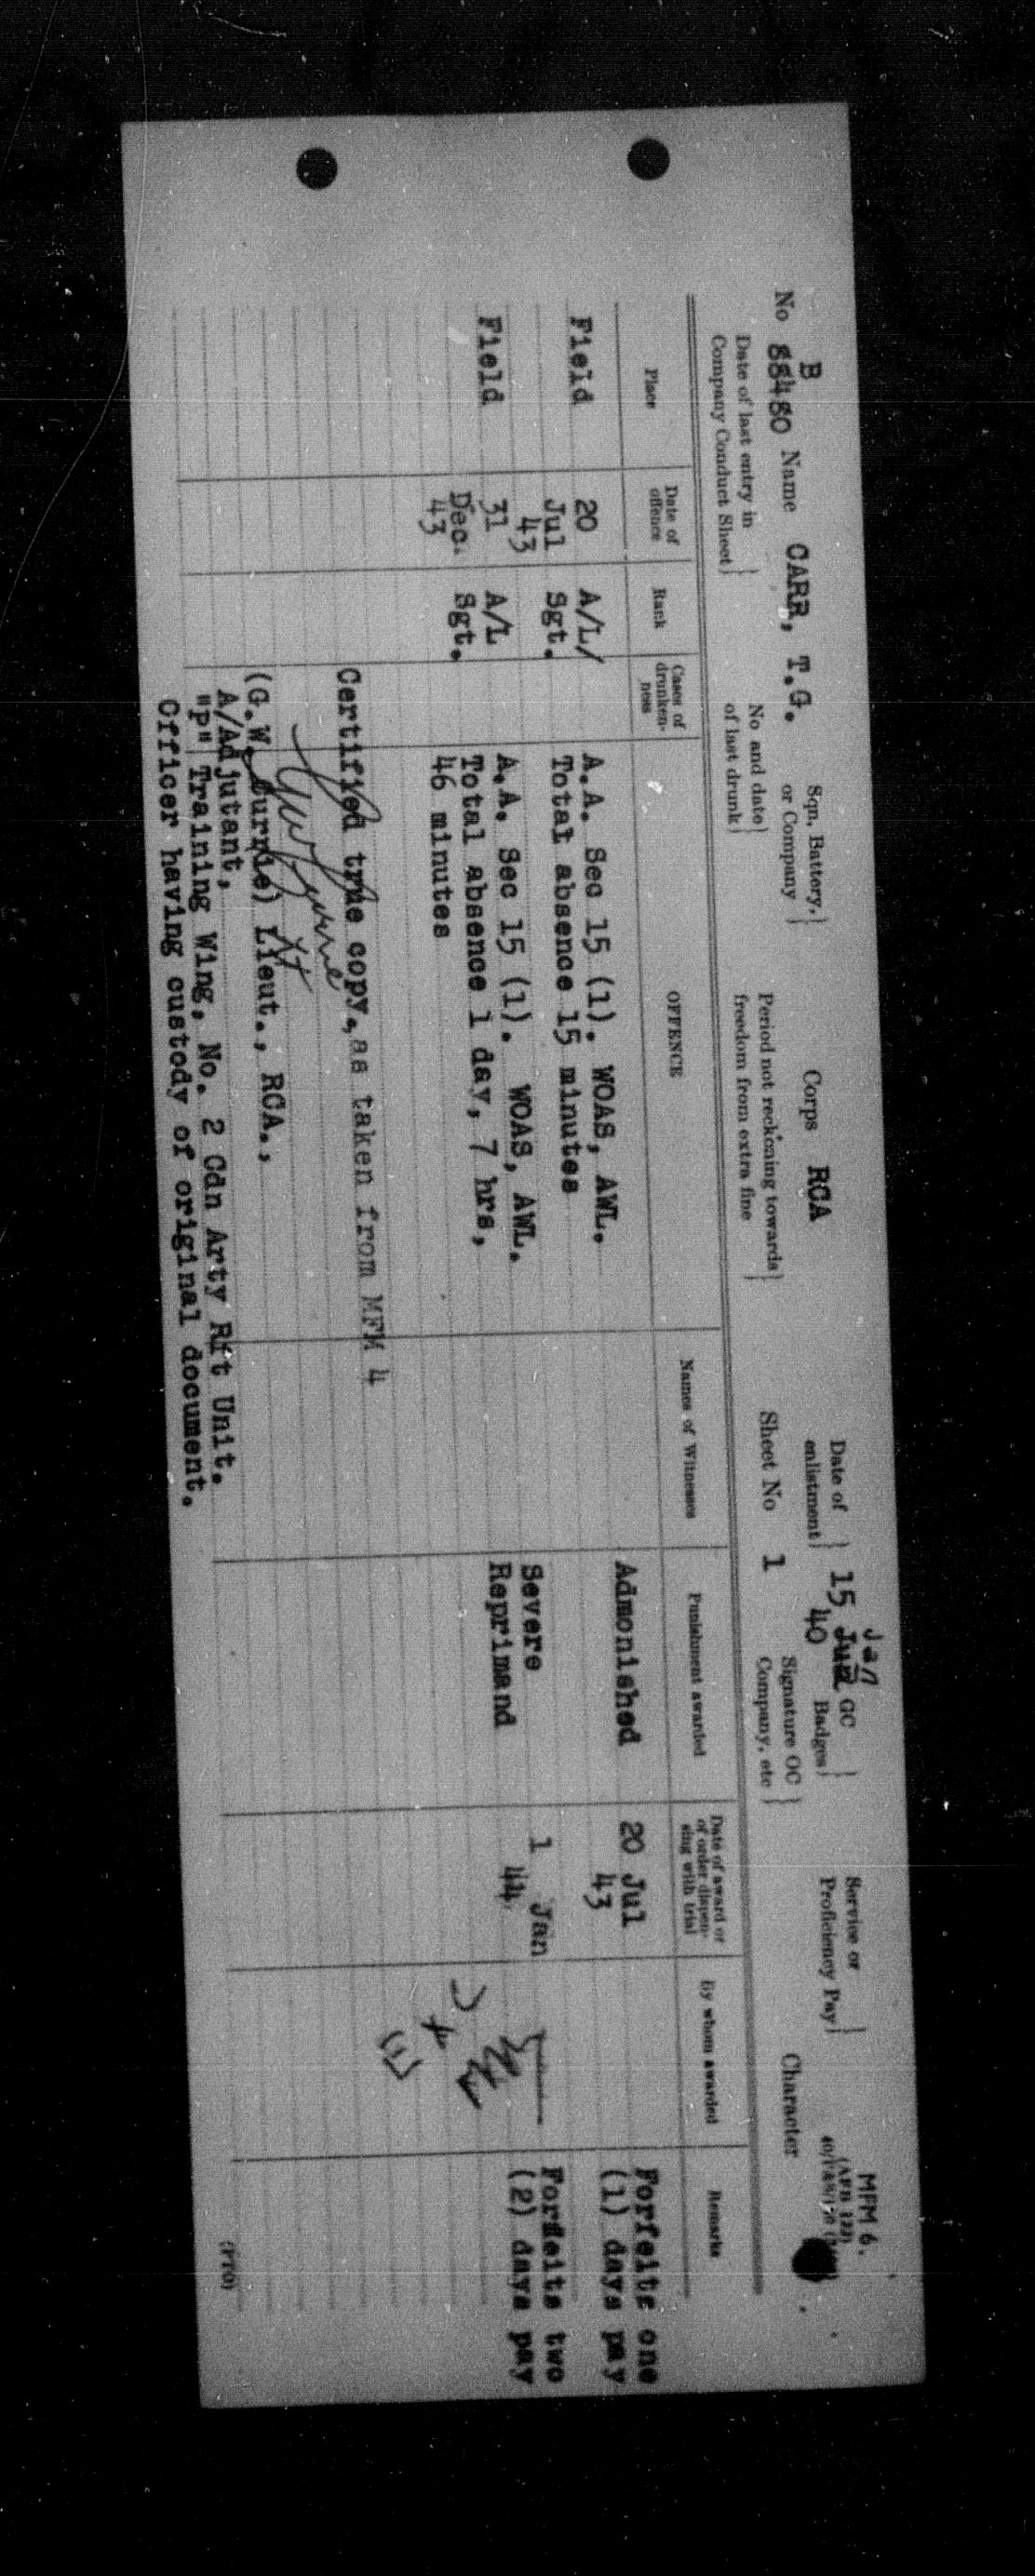 MFM 6.
(AFB 122)
B
No 88480 Name CARR, T.G. Sqn, Battery, or Company Corps RCA Date of enlistment 15 Jan 40 GC Badges Service or Proficiency Pay
Date of last entry in Company Conduct Sheet No and date of last drunk Period not reckoning towards freedom from extra fine Sheet No 1 Signature OC Company, etc Character
Place Date of offence Rank Cases of drunken-ness OFFENCE Names of Witnesses Punishment awarded Date of award or of order dispen-sing with trial By whom awarded Remarks
Field 20 A/L/ A.A. Sec 15 (1). WOAS, AWL. Admonished 20 Jul Forfeits one
Jul Sgt. Total absence 15 minutes 43 (1) days pay
43
Field 31 A/L A.A. Sec 15 (1). WOAS, AWL. Severe 1 Jan Forfeits two
Dec. Sgt. Total absence 1 day, 7 hrs, Reprimand 44 (2) days pay
43 46 minutes
Certified true copy, as taken from MFM 4
(G.W. Currie) Lieut., RCA.,
A/Adjutant,
"P" Training Wing, No. 2 Cdn Arty Rft Unit.
Officer having custody of original document.
(PTO)